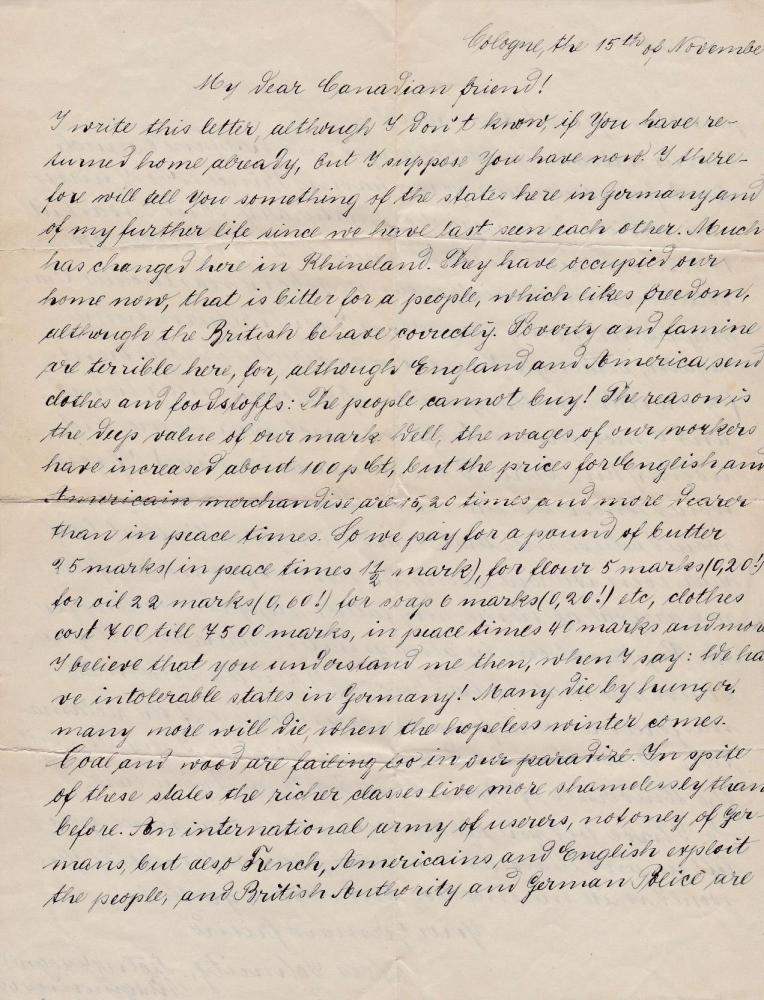 Cologne, the 15th of Novembe
My dear Canadian friend!
I write this letter, although I don't know, if You have re-
turned home already, but I suppose You have now. I there-
fore will tell You something of the states here in Germany and
of my further life since we have last seen each other. Much
has changed here in Rhineland. They have occupied our
home now, that is bitter for a people, which likes freedom,
although the British behave correctly. Poverty and famine
are terrible here, for, although England and America send
clothes and foodstoffs: The people cannot buy! The reason is
the deep value of our mark. Well, the wages of our workers
have increased about 100 pCt, but the prices for English and
Americain merchandise are 15, 20 times and more dearer
than in peace times. So we pay for a pound of butter
25 marks (in peace times 1 1/2 mark), for flour 5 marks (0,20!)
for oil 22 marks (0,60!) for soap 6 marks (0,20!) etc, clothes
cost 700 till 7500 marks, in peace times 40 marks and more
I believe that you understand me then, when I say: We ha
ve intolerable states in Germany! Many die by hunger,
many more will die, when the hopeless winter comes.
Coal and wood are failing too in our paradize. In spite
of these states the richer classes live more shamelessly than
before. An international army of userers, not oney of Ger-
mans, but also French, Americains, and English exploit
the people, and British Authority and German Police are